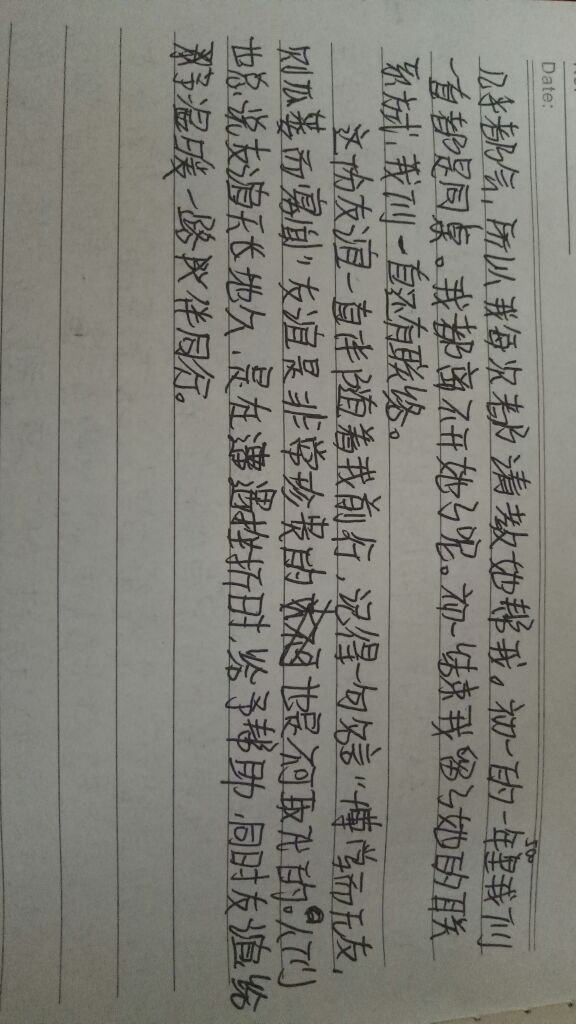 Date:
几乎都会，所以我每次都请教她帮我。初一的一年里我们
500
一直都是同桌。我都离不开她了呢。初一结束我留了她的联
系方式，我们一直还有联络。
这份友谊一直伴随着我前行，记得一句名言“博学而无友，
则孤芳而寡闻”友谊是非常珍贵的 也是不可取代的。人们
也总说友谊天长地久，是在遭遇挫折时，给予帮助，同时友谊给
予温暖一路伴同行。